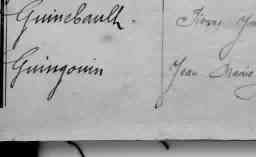 Guinebault. Pierre
Guingouin Jean Marie